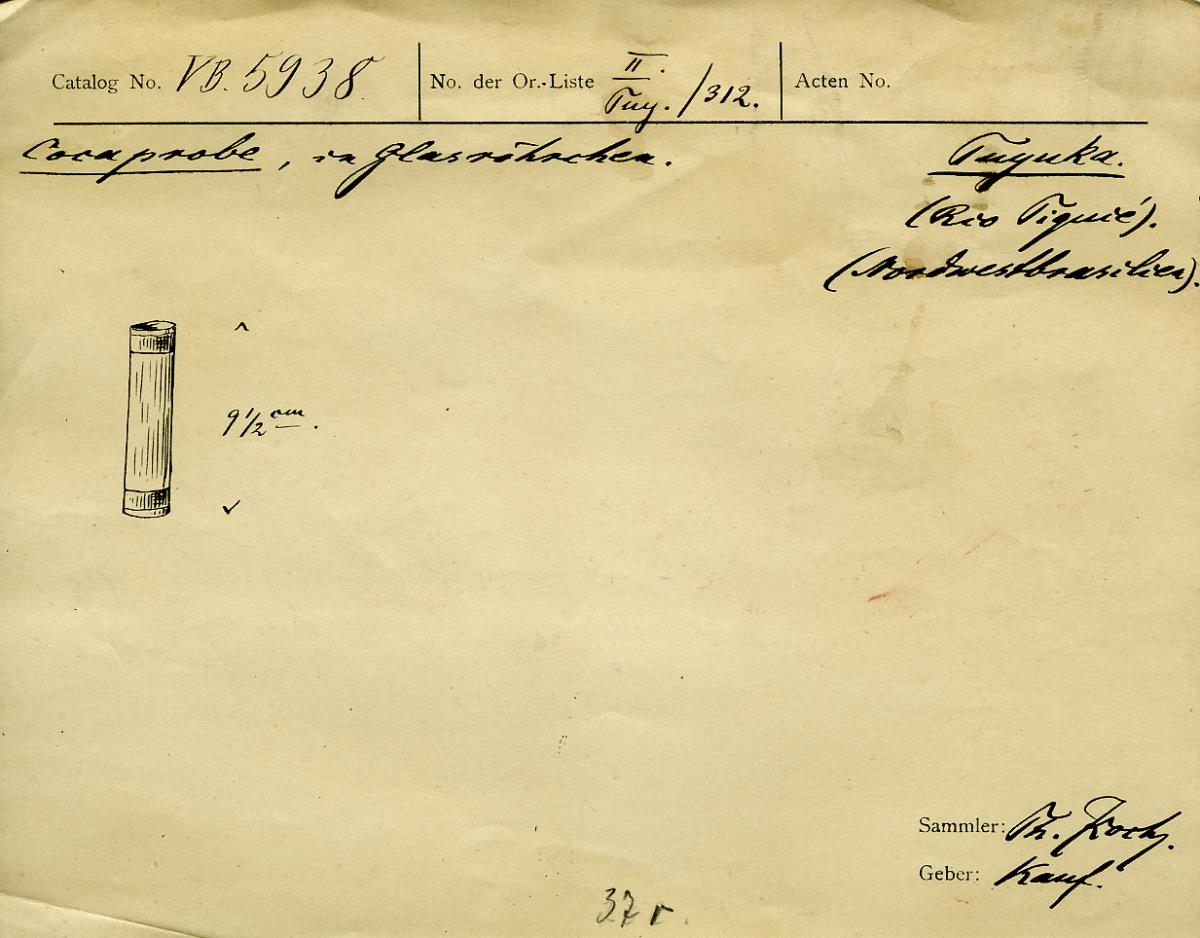 Catalog No. VB. 5938. No. der Or.-Liste II. Tuy. /312. Acten No.
Cocaprobe, in Glasröhrchen.
Tuyuka.
(Rio Tiquié).
(Nordwestbrasilien).
9 1/2 cm.
Sammler: Th. Koch.
Geber: Kauf.
37 r.